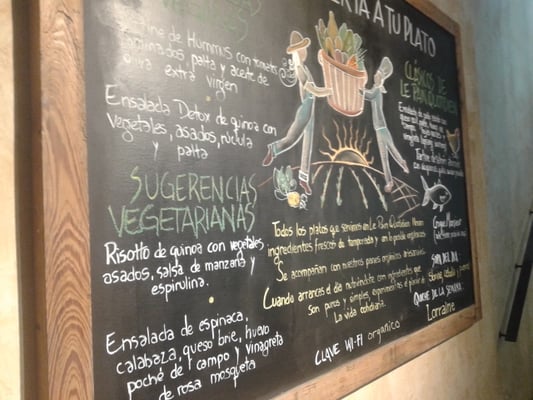 TA A TU PLATO
de Hummus con tomates
palta y aceite de
oliva extra virgen
Ensalada Detox de quinoa con
vegetales, asados, rúcula
y
palta
SUGERENCIAS
VEGETARIANAS
Risotto de quinoa con vegetales
asados, salsa de manzana y
espirulina.
Ensalada de espinaca,
calabaza, queso brie, huevo
poché de campo y vinagreta
de rosa mosqueta
Todos los platos que servimos en Le Pain Quotidien llevan
ingredientes frescos de temporada y en lo posible orgánicos
Se acompañan con nuestros panes orgánicos artesanales
Cuando arrancas el día nutriéndote con ingredientes que
son puros y simples, experimentas el placer de
La vida cotidiana.
CLAVE WI-FI organico
CLÁSICOS DE
LE PAIN QUOTIDIEN
SOPA DEL DÍA
QUICHE DE LA SEMANA
Lorraine